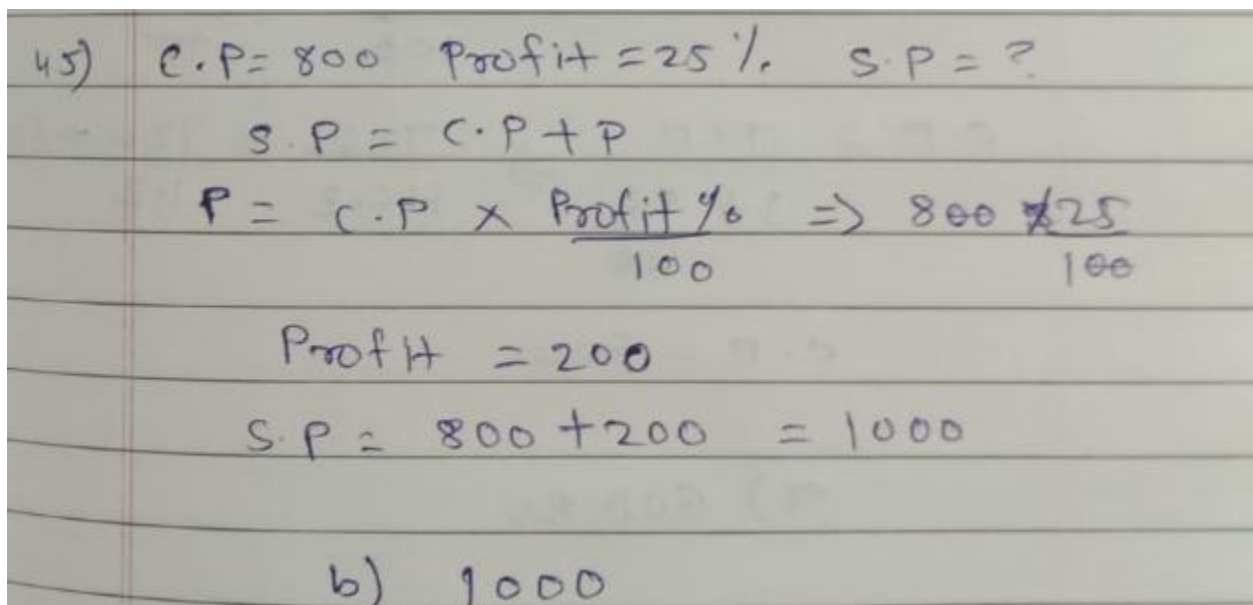 45) C.P= 800 Profit = 25 %. S.P = ?
S.P = C.P + P
P = C.P × Profit % / 100 => 800 × 25 / 100
Profit = 200
S.P = 800 + 200 = 1000
b) 1000